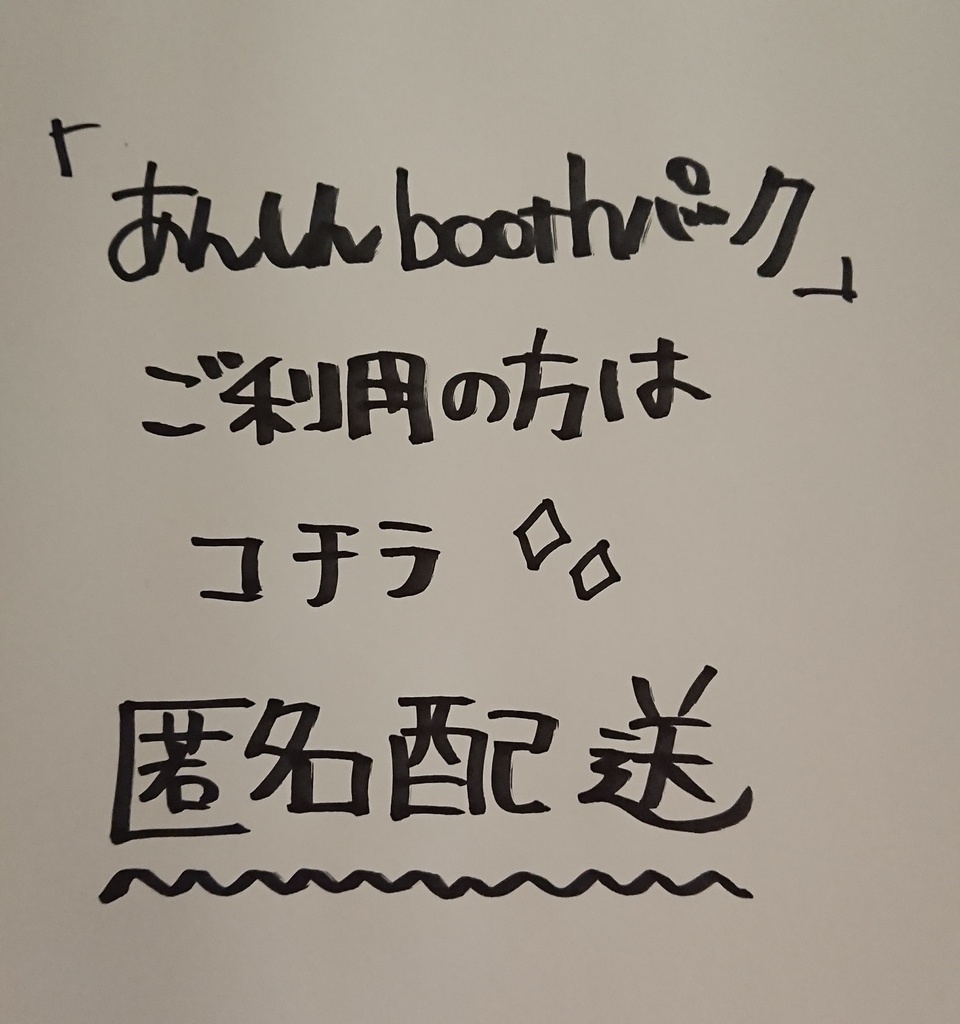 「あんしんboothパック」
ご利用の方は
コチラ
匿名配送